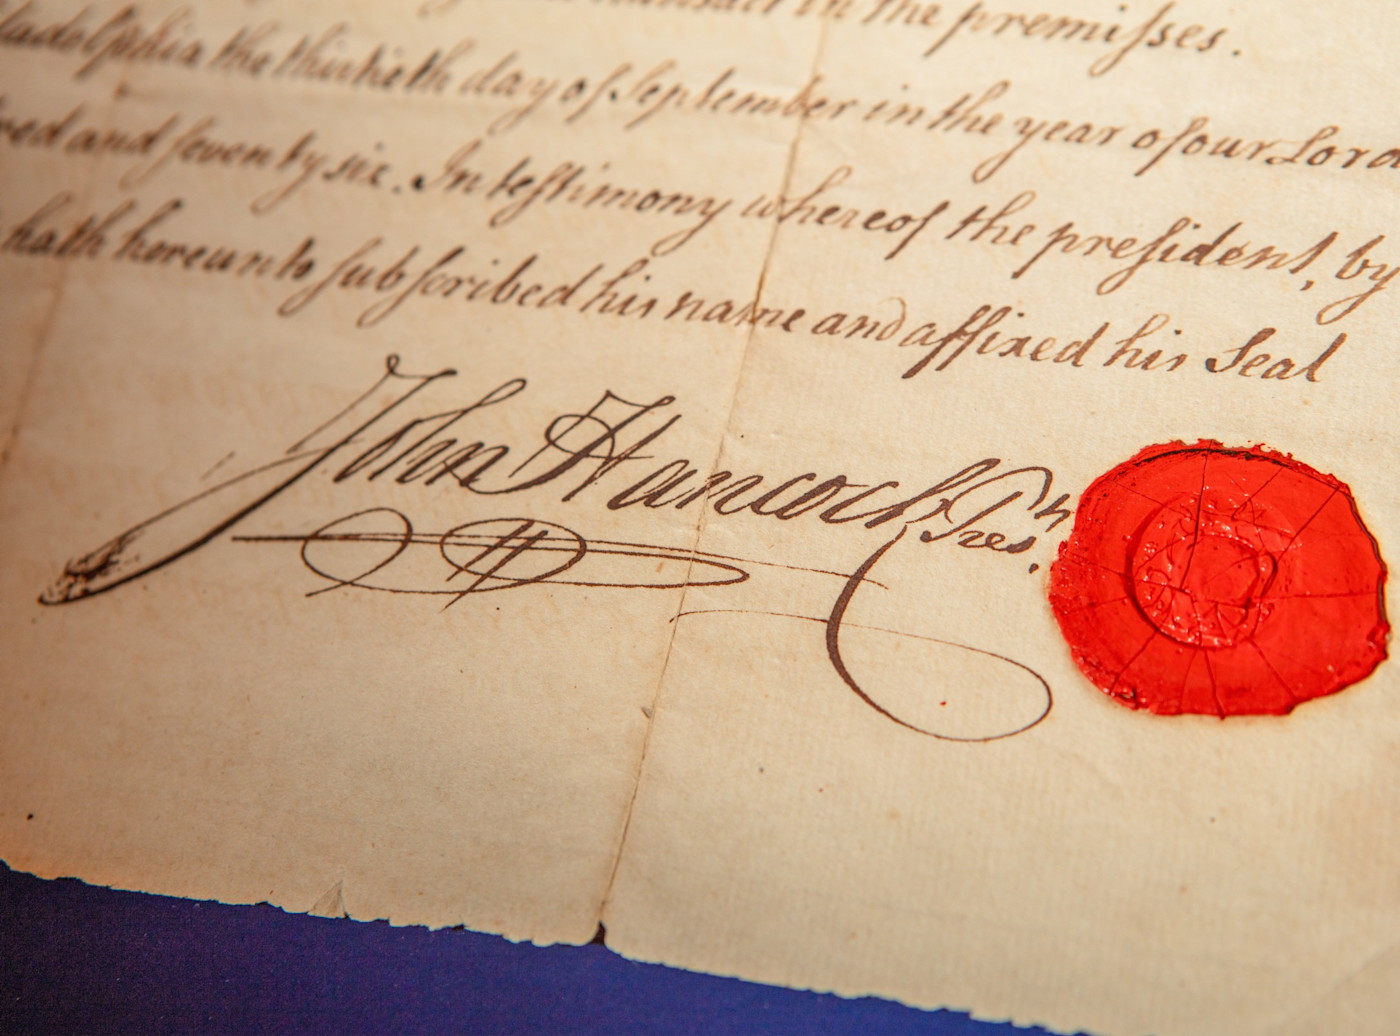 in the premiſses.
ladelphia the thirtieth day of September in the year of our Lord
red and ſeventy six. In teſtimony whereof the preſident, by
hath hereunto ſubſcribed his name and affixed his Seal
John Hancock Presᵗ.